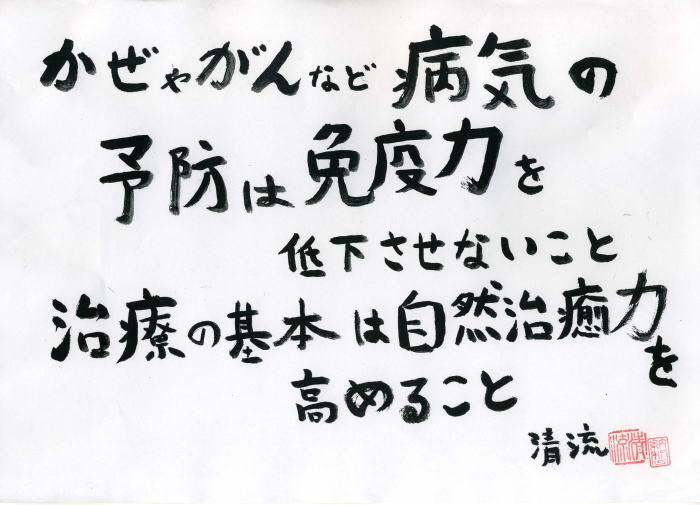 かぜやがんなど病気の
予防は免疫力を
低下させないこと
治療の基本は自然治癒力を
高めること
清流